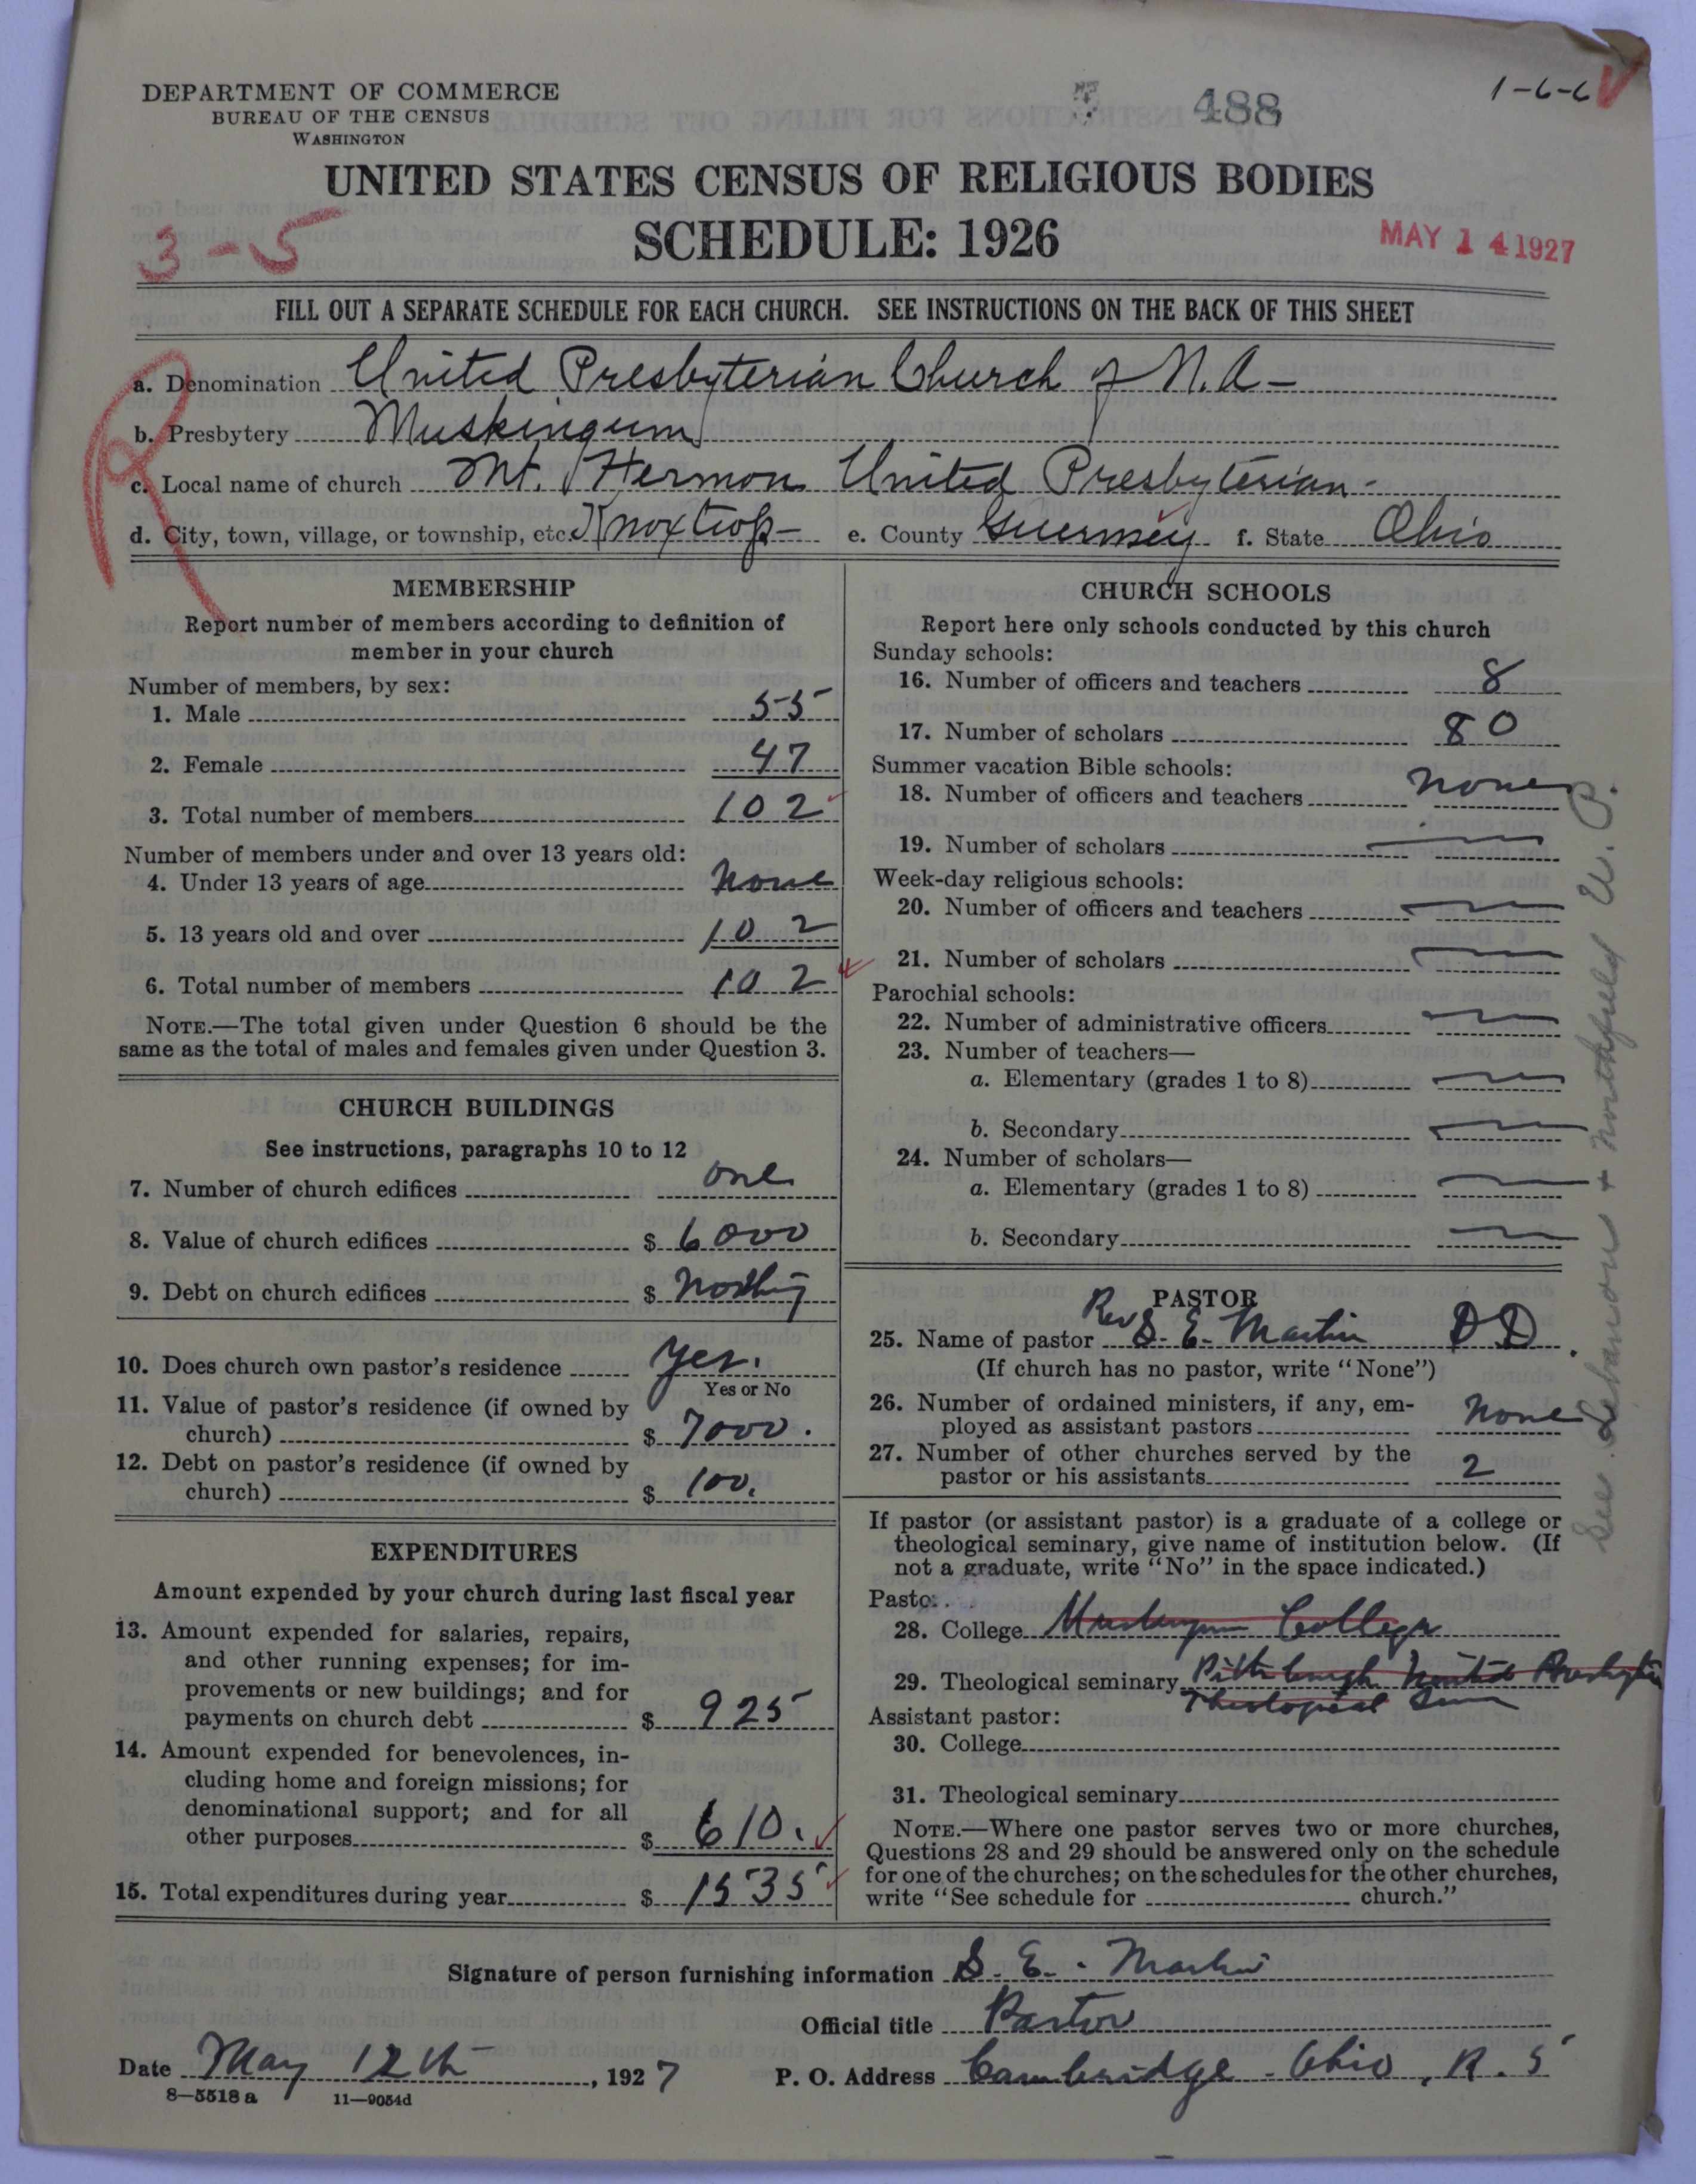 1-6-6 V
DEPARTMENT OF COMMERCE
BUREAU OF THE CENSUS
WASHINGTON
488
UNITED STATES CENSUS OF RELIGIOUS BODIES
SCHEDULE: 1926
3-5
MAY 14 1927
FILL OUT A SEPARATE SCHEDULE FOR EACH CHURCH. SEE INSTRUCTIONS ON THE BACK OF THIS SHEET
R
a. Denomination United Presbyterian Church of N.A-
b. Presbytery Muskingum
c. Local name of church Mt. Hermon United Presbyterian-
d. City, town, village, or township, etc. Knox twp- e. County Guernsey f. State Ohio
MEMBERSHIP
Report number of members according to definition of
member in your church
Number of members, by sex:
1. Male 55
2. Female 47
3. Total number of members 102
Number of members under and over 13 years old:
4. Under 13 years of age None
5. 13 years old and over 102
6. Total number of members 102
NOTE.—The total given under Question 6 should be the
same as the total of males and females given under Question 3.
CHURCH BUILDINGS
See instructions, paragraphs 10 to 12
7. Number of church edifices one
8. Value of church edifices $ 6000
9. Debt on church edifices $ Nothing
10. Does church own pastor's residence Yes.
Yes or No
11. Value of pastor's residence (if owned by
church) $ 7000.
12. Debt on pastor's residence (if owned by
church) $ 100.
EXPENDITURES
Amount expended by your church during last fiscal year
13. Amount expended for salaries, repairs,
and other running expenses; for im-
provements or new buildings; and for
payments on church debt $ 925
14. Amount expended for benevolences, in-
cluding home and foreign missions; for
denominational support; and for all
other purposes $ 610.
15. Total expenditures during year $ 1535
CHURCH SCHOOLS
Report here only schools conducted by this church
Sunday schools:
16. Number of officers and teachers 8
17. Number of scholars 80
Summer vacation Bible schools:
18. Number of officers and teachers None
19. Number of scholars —
Week-day religious schools:
20. Number of officers and teachers —
21. Number of scholars —
Parochial schools:
22. Number of administrative officers —
23. Number of teachers—
a. Elementary (grades 1 to 8) —
b. Secondary —
24. Number of scholars—
a. Elementary (grades 1 to 8) —
b. Secondary —
PASTOR
25. Name of pastor Rev S. E. Martin D D.
(If church has no pastor, write "None")
26. Number of ordained ministers, if any, em-
ployed as assistant pastors None
27. Number of other churches served by the
pastor or his assistants 2
If pastor (or assistant pastor) is a graduate of a college or
theological seminary, give name of institution below. (If
not a graduate, write "No" in the space indicated.)
Pastor:
28. College Muskingum College
29. Theological seminary Pittsburgh United Presbyterian
Theological Sem
Assistant pastor:
30. College
31. Theological seminary
NOTE.—Where one pastor serves two or more churches,
Questions 28 and 29 should be answered only on the schedule
for one of the churches; on the schedules for the other churches,
write "See schedule for church."
See Lebanon + Northfield U. P.
Signature of person furnishing information S. E. Martin
Official title Pastor
Date May 12th, 1927 P. O. Address Cambridge - Ohio, R. 5
8—5518 a 11—9054d